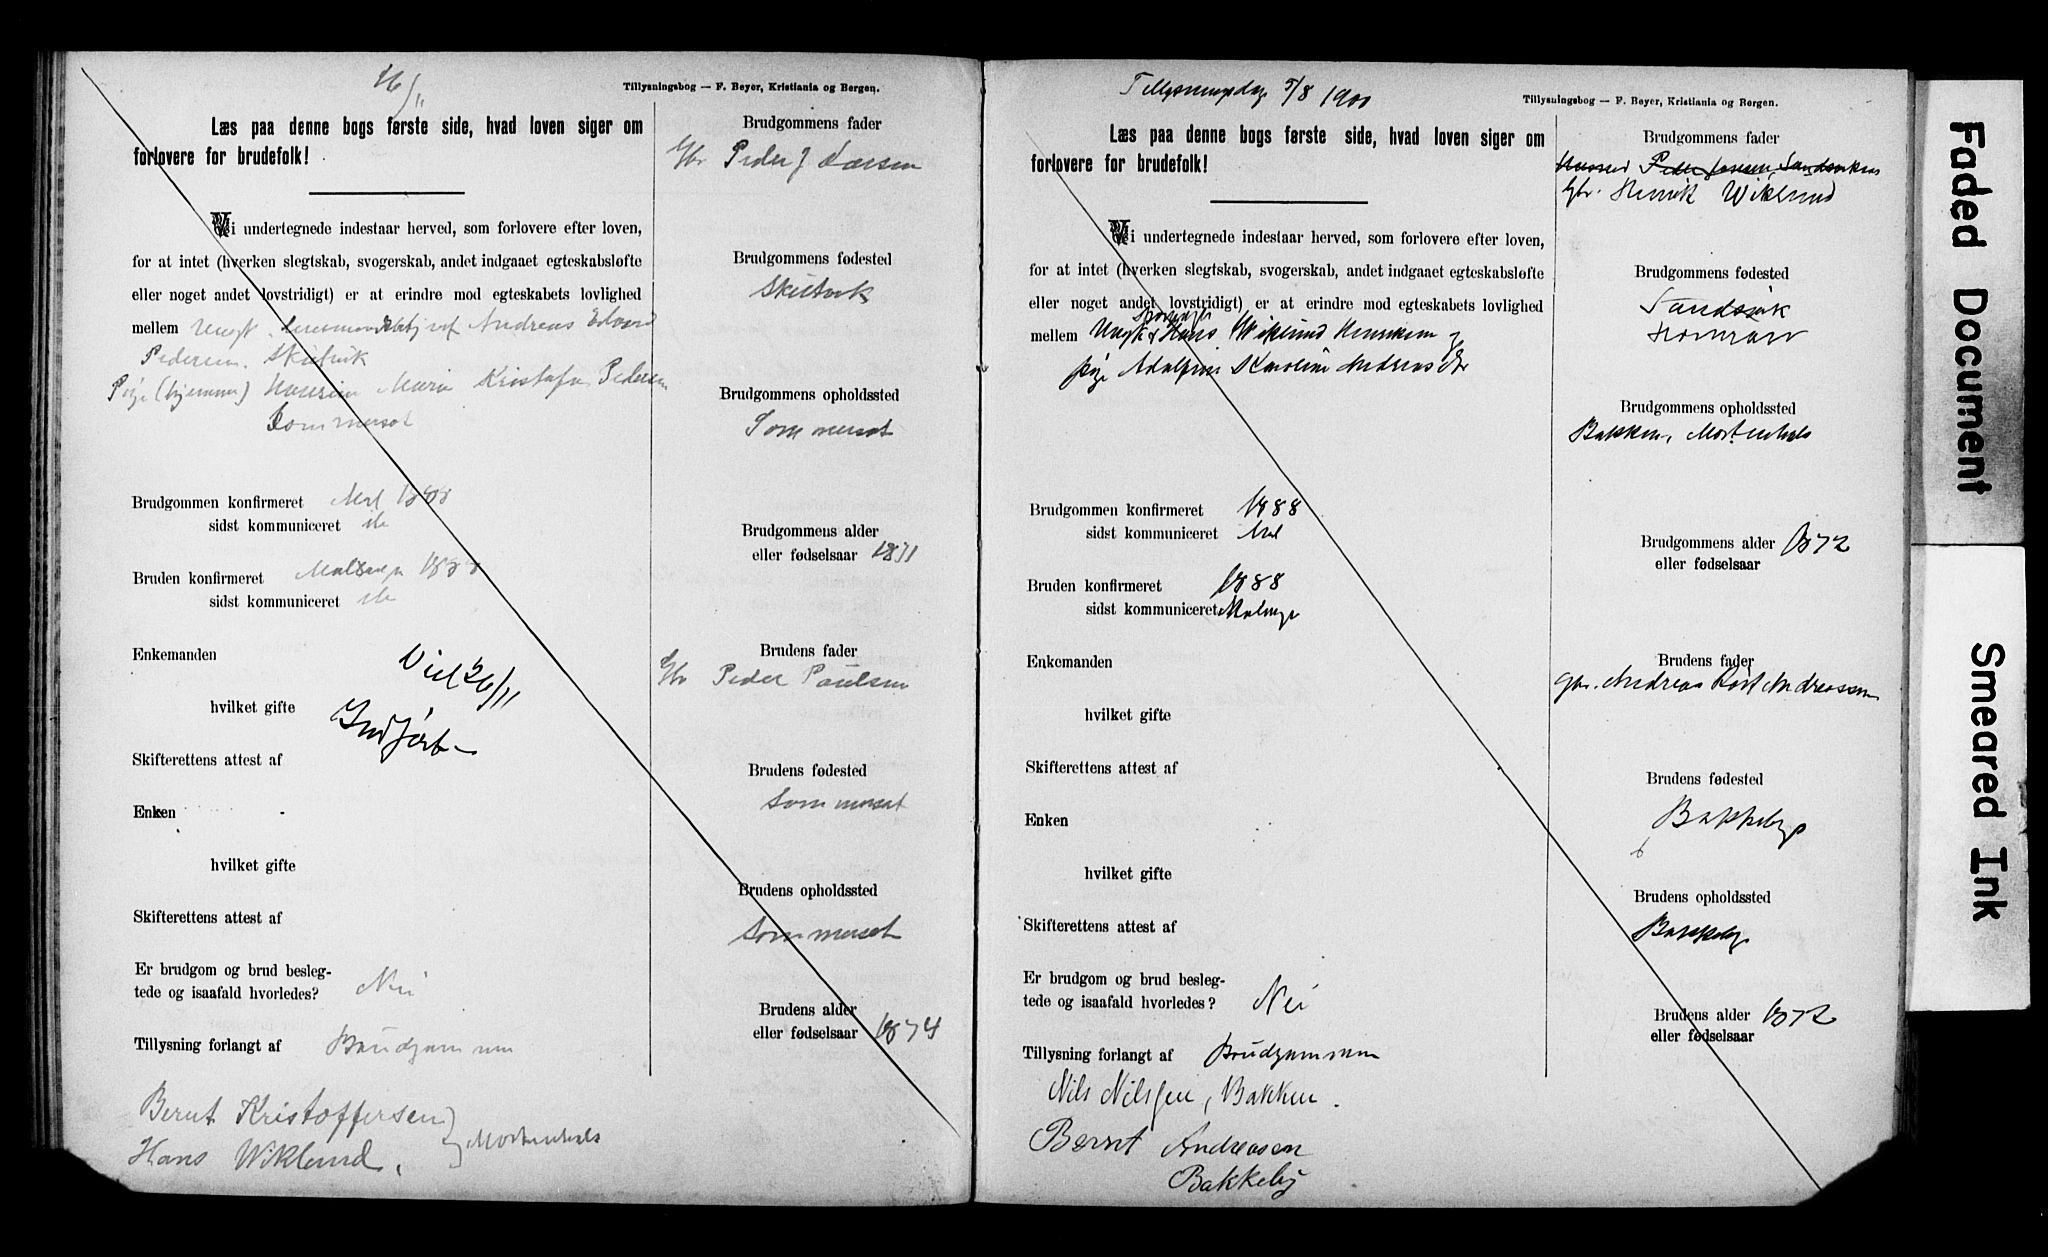 26/11
Tillysningsbog — F. Beyer, Kristiania og Bergen.
Læs paa denne bogs første side, hvad loven siger om
forlovere for brudefolk!
Vi undertegnede indestaar herved, som forlovere efter loven,
for at intet (hverken slegtskab, svogerskab, andet indgaaet egteskabsløfte
eller noget andet lovstridigt) er at erindre mod egteskabets lovlighed
mellem Ungk. Andreas Edvard
Pedersen. Skutvik
Pige (hjemme) Maria Kristofa Pedersen
Sommerset
Brudgommen konfirmeret 1888
sidst kommuniceret
Bruden konfirmeret Malangen 1888
sidst kommuniceret
Enkemanden
Viet 26/11
hvilket gifte
Indført
Skifterettens attest af
Enken
hvilket gifte
Skifterettens attest af
Er brudgom og brud besleg-
tede og isaafald hvorledes? Nei
Tillysning forlangt af Brudgommen
Bernt Kristoffersen
Hans Wiklund, Mortenhals
Brudgommens fader
Gbr Peder J Larsen
Brudgommens fødested
Skutvik
Brudgommens opholdssted
Sommerset
Brudgommens alder
eller fødselsaar 1871
Brudens fader
Gbr Peder Paulsen
Brudens fødested
Sommerset
Brudens opholdssted
Sommerset
Brudens alder
eller fødselsaar 1874
Tillysningsdag 5/8 1900
Tillysningsbog — F. Beyer, Kristiania og Bergen.
Læs paa denne bogs første side, hvad loven siger om
forlovere for brudefolk!
Vi undertegnede indestaar herved, som forlovere efter loven,
for at intet (hverken slegtskab, svogerskab, andet indgaaet egteskabsløfte
eller noget andet lovstridigt) er at erindre mod egteskabets lovlighed
mellem Ungk Hans Wiklund Henriksen og
pige Adolfine Karoline Andreasdtr
Brudgommen konfirmeret 1888
sidst kommuniceret
Bruden konfirmeret 1888
sidst kommuniceret Malange
Enkemanden
hvilket gifte
Skifterettens attest af
Enken
hvilket gifte
Skifterettens attest af
Er brudgom og brud besleg-
tede og isaafald hvorledes? Nei
Tillysning forlangt af Brudgommen
Nils Nilsen, Bakken.
Bernt Andreasen
Bakkeby
Brudgommens fader
Peder Jensen, Sandviken
Gbr. Henrik Wiklund
Brudgommens fødested
Sandsvik
Brudgommens opholdssted
Bakken, Mortenhals
Brudgommens alder 1872
eller fødselsaar
Brudens fader
gbr. Andreas Andreassen
Brudens fødested
Bakkeby
Brudens opholdssted
Bakkeby
Brudens alder 1872
eller fødselsaar
Faded Document
Smeared Ink